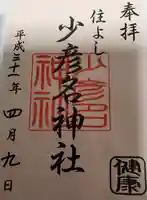 奉拝
住よし
少彦名神社
平成三十一年四月九日
少彦名
神社
健康